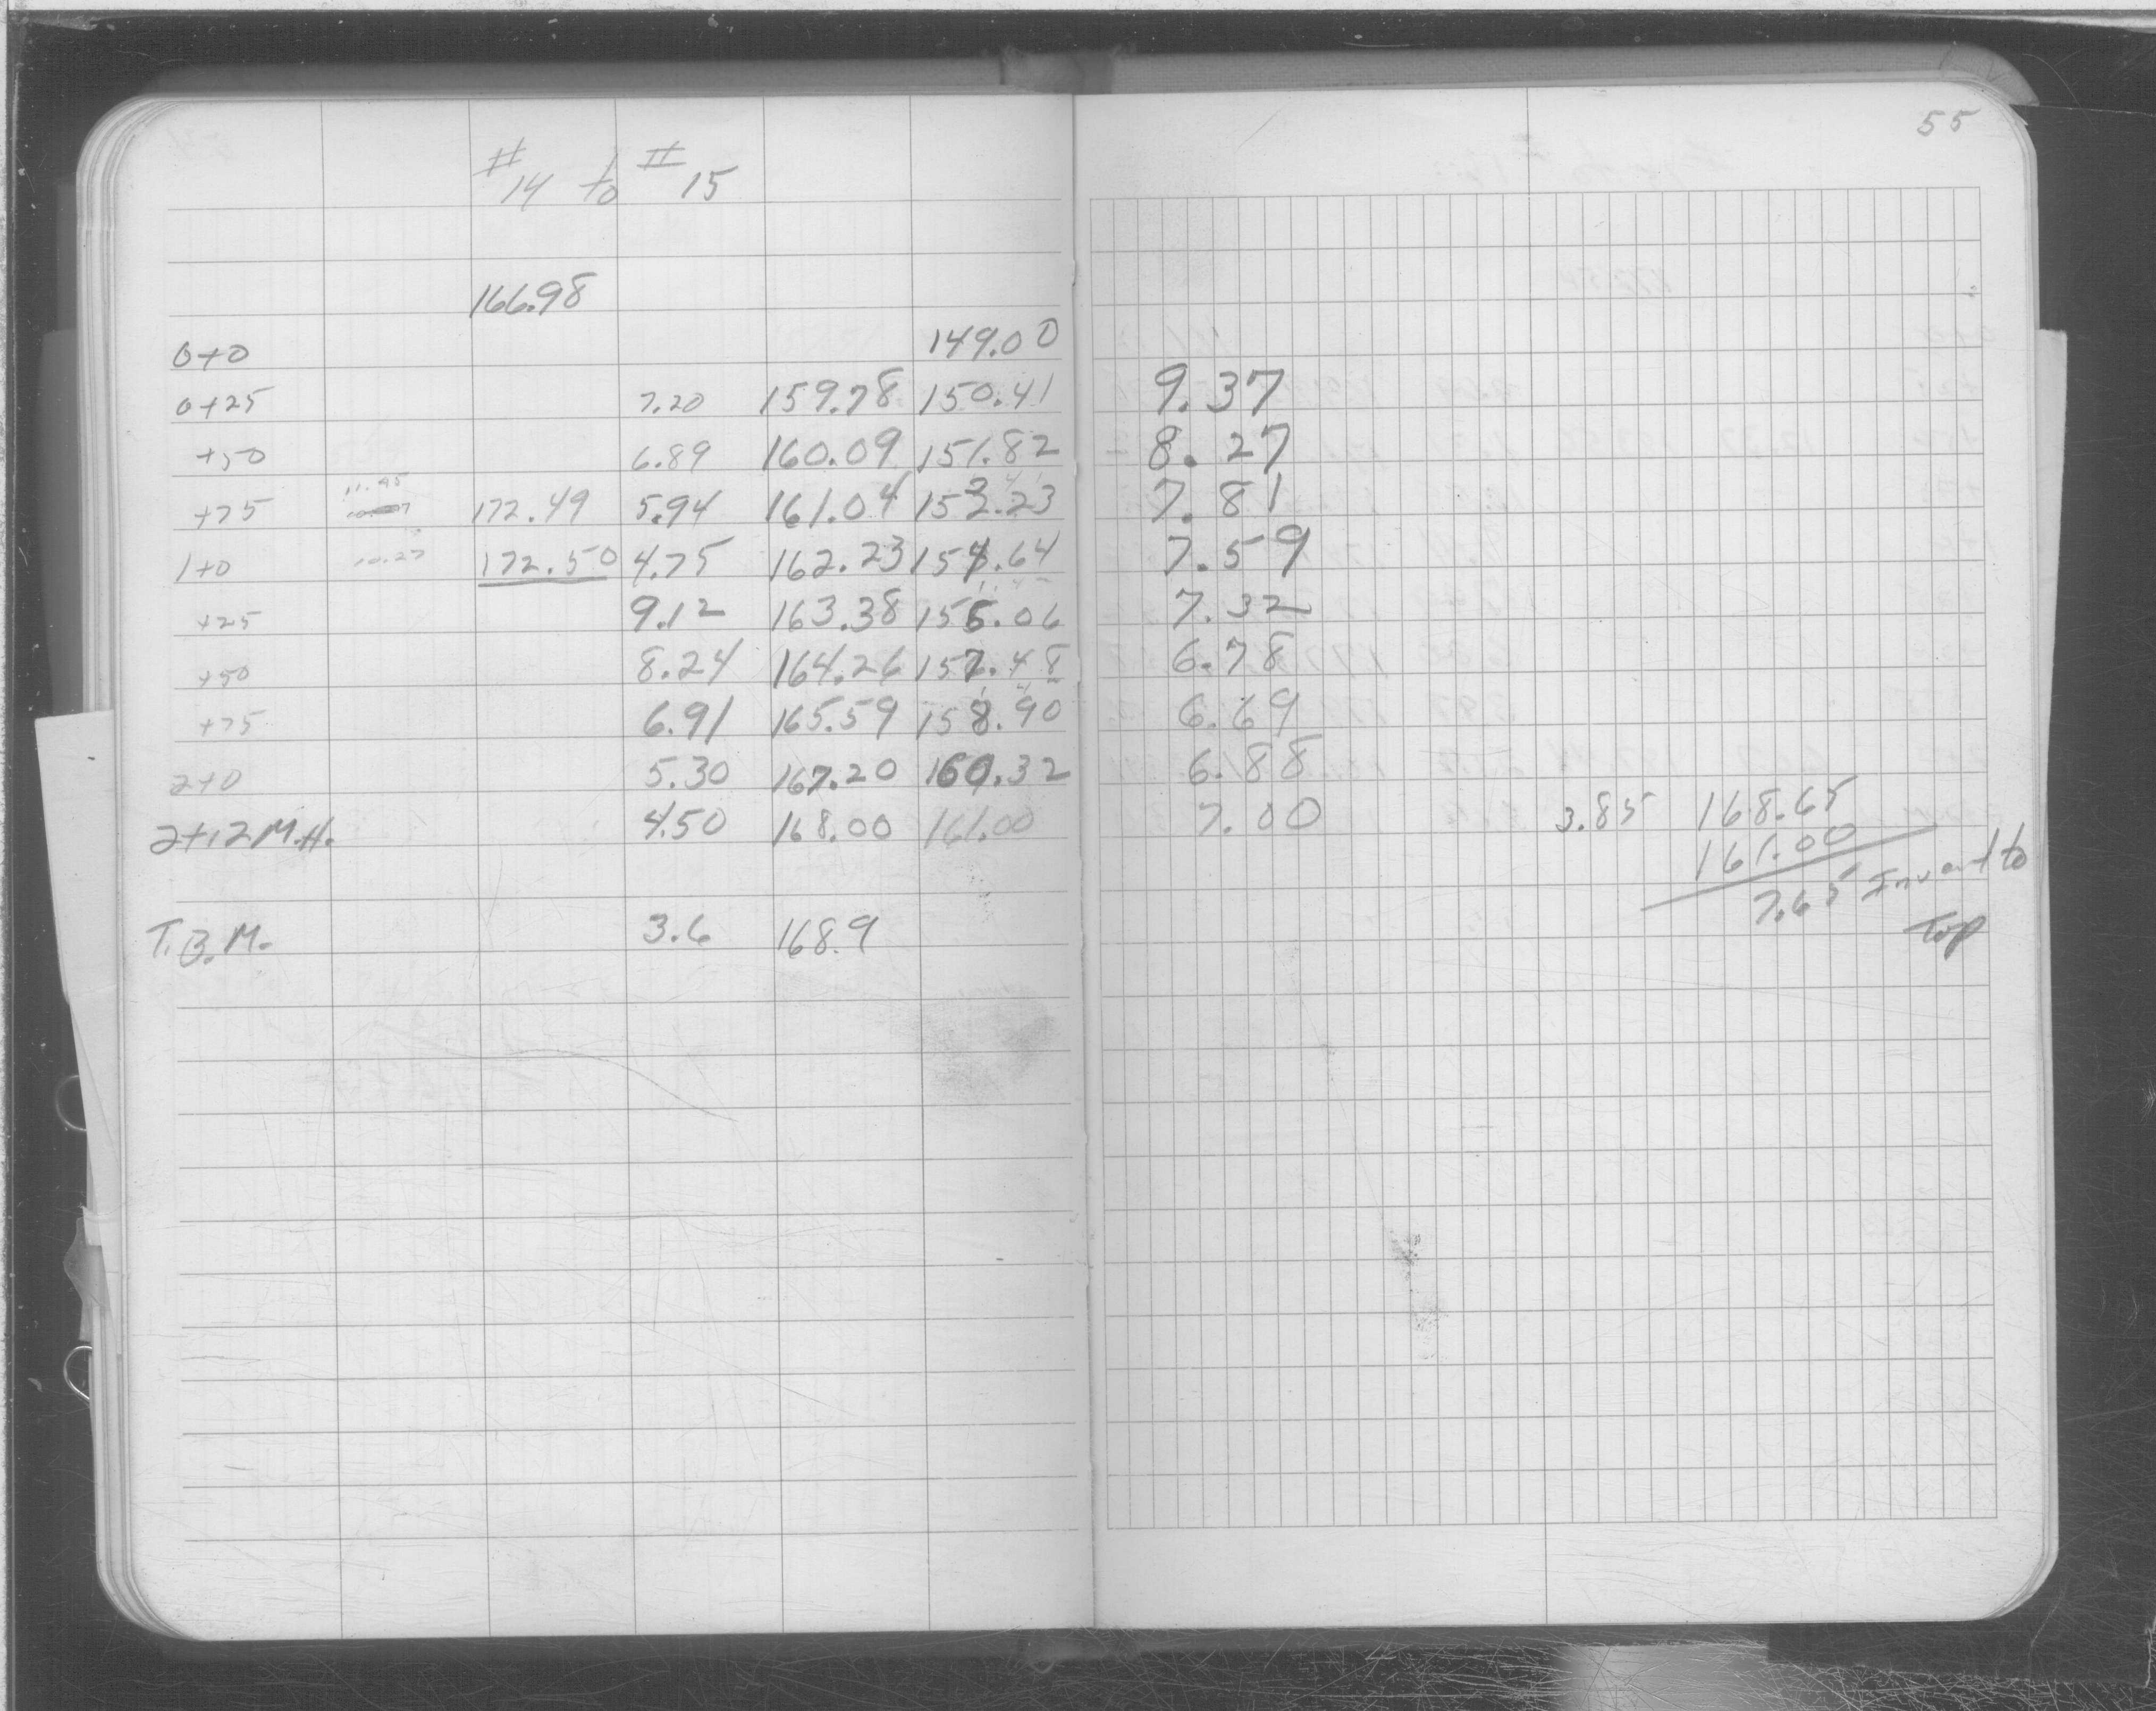 55
# 14 to # 15
166.98
0+0 149.00
0+25 7.20 159.78 150.41 9.37
+50 6.89 160.09 151.82 8.27
11.45
+75 172.49 5.94 161.04 153.23 7.81
1+0 10.27 172.50 4.75 162.23 154.64 7.59
+25 9.12 163.38 156.06 7.32
+50 8.24 164.26 157.48 6.78
+75 6.91 165.59 158.90 6.69
2+0 5.30 167.20 160.32 6.88
2+12 M.H. 4.50 168.00 161.00 7.00 3.85 168.65
161.00
7.65 Invert to
Top
T.B.M. 3.6 168.9